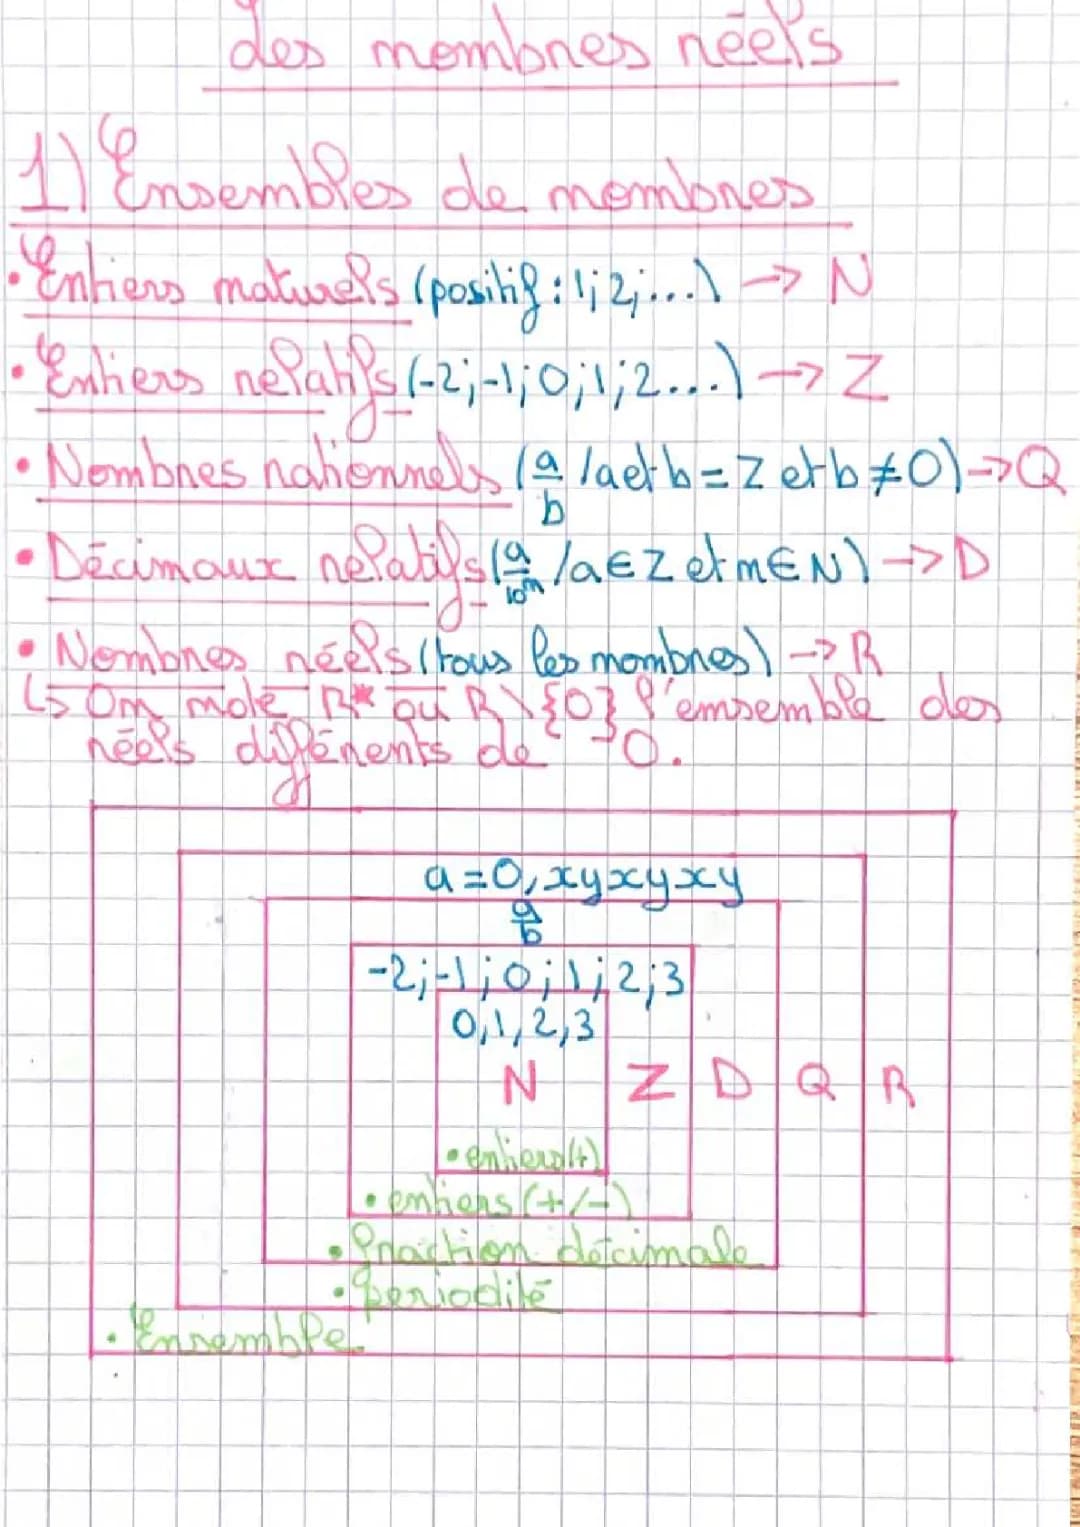 des nombres réels
1) Ensembles de nombres
• Entiers naturels (positif : 1; 2; ...) → N
• Entiers relatifs (-2; -1; 0; 1; 2...) → Z
• Nombres rationnels (a/b /a et b = Z et b ≠ 0) → Q
• Décimaux relatifs (a/10ⁿ /a ∈ Z et n ∈ N) → D
• Nombres réels (tous les nombres) → R
↳ On note R* ou R\{0} l'ensemble des
réels différents de 0.
a = 0,xyxyxy
a/b
-2; -1; 0; 1; 2; 3
0, 1, 2, 3
N Z D Q R
• entiers (+)
• entiers (+/-)
• fraction décimale
• periodité
• Ensemble